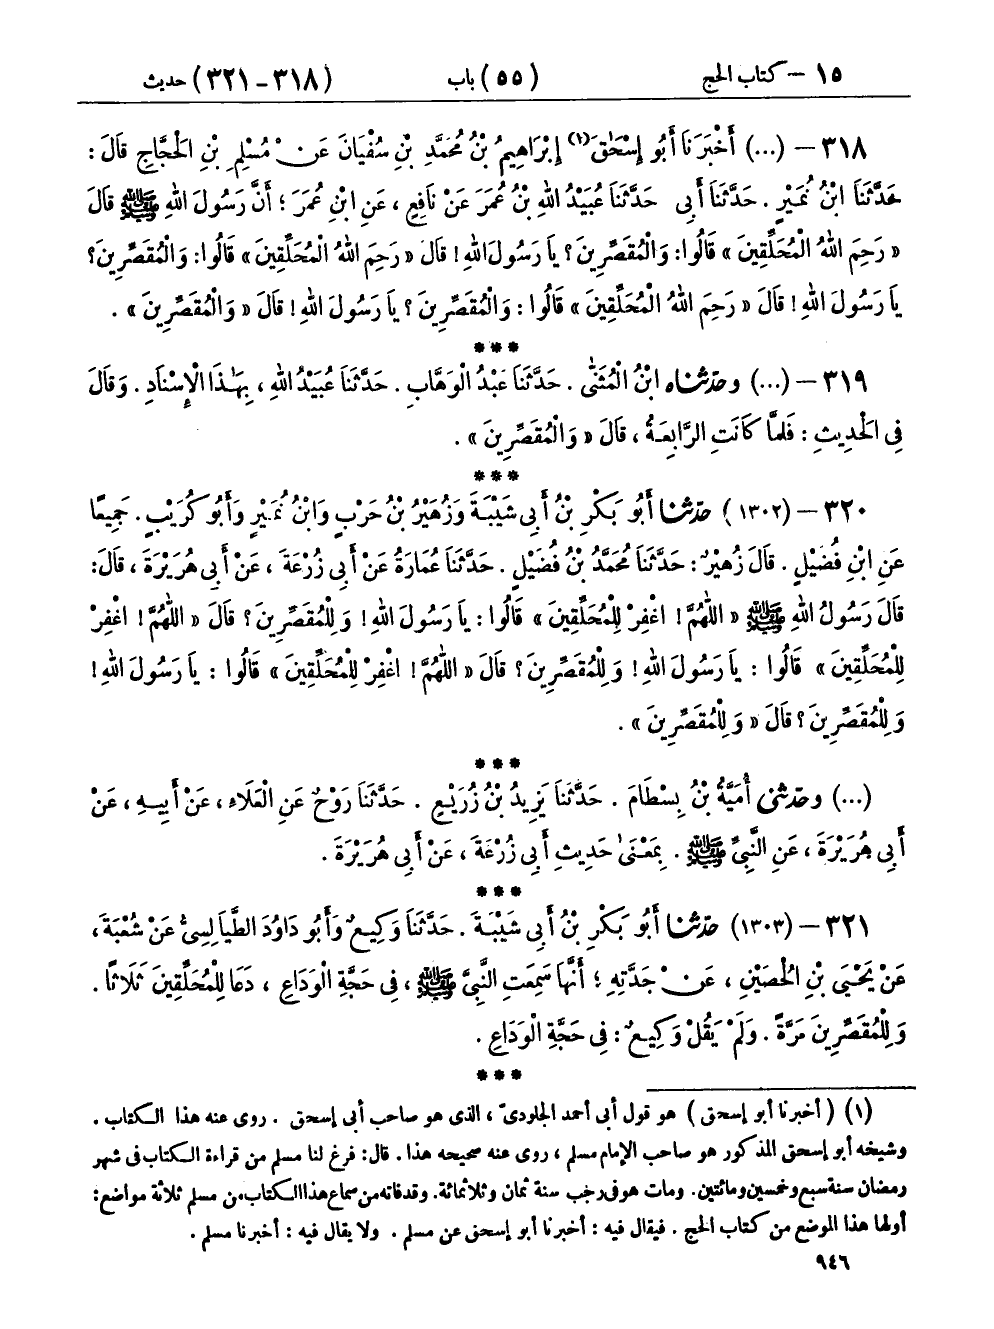 ١٥ – كتاب الحج (٥٥) باب (٣١٨ – ٣٢١) حديث
٣١٨ – (...) أَخْبَرَنَا أَبُو إِسْحَٰقَ(١) إِبْرَاهِيمُ بْنُ مُحَمَّدِ بْنِ سُفْيَانَ عَنْ مُسْلِمِ بْنِ الْحَجَّاجِ قَالَ :
حَدَّثَنَا ابْنُ نُمَيْرٍ . حَدَّثَنَا أَبِى حَدَّثَنَا عُبَيْدُ اللهِ بْنُ عُمَرَ عَنْ نَافِعٍ ، عَنِ ابْنِ عُمَرَ ؛ أَنَّ رَسُولَ اللهِ ﷺ قَالَ
« رَحِمَ اللهُ الْمُحَلِّقِينَ » قَالُوا: وَالْمُقَصِّرِينَ ؟ يَا رَسُولَ اللهِ ! قَالَ « رَحِمَ اللهُ الْمُحَلِّقِينَ » قَالُوا: وَالْمُقَصِّرِينَ؟
يَا رَسُولَ اللهِ ! قَالَ « رَحِمَ اللهُ الْمُحَلِّقِينَ » قَالُوا : وَالْمُقَصِّرِينَ ؟ يَا رَسُولَ اللهِ ! قَالَ « وَالْمُقَصِّرِينَ » .
***
٣١٩ – (...) وحَدَّثَنَاه ابْنُ الْمُثَنَّىٰ . حَدَّثَنَا عَبْدُ الْوَهَّابِ . حَدَّثَنَا عُبَيْدُ اللهِ ، بِهَٰذَا الْإِسْنَادِ . وَقَالَ
فِى الْحَدِيثِ : فَلَمَّا كَانَتِ الرَّابِعَةُ ، قَالَ « وَالْمُقَصِّرِينَ » .
***
٣٢٠ – (١٣٠٢) حَدَّثَنَا أَبُو بَكْرِ بْنُ أَبِى شَيْبَةَ وَزُهَيْرُ بْنُ حَرْبٍ وَابْنُ نُمَيْرٍ وَأَبُو كُرَيْبٍ . جَمِيعًا
عَنِ ابْنِ فُضَيْلٍ . قَالَ زُهَيْرٌ : حَدَّثَنَا مُحَمَّدُ بْنُ فُضَيْلٍ . حَدَّثَنَا عُمَارَةُ عَنْ أَبِى زُرْعَةَ ، عَنْ أَبِى هُرَيْرَةَ ، قَالَ:
قَالَ رَسُولُ اللهِ ﷺ « اللّٰهُمَّ ! اغْفِرْ لِلْمُحَلِّقِينَ » قَالُوا : يَا رَسُولَ اللهِ ! وَلِلْمُقَصِّرِينَ ؟ قَالَ « اللّٰهُمَّ ! اغْفِرْ
لِلْمُحَلِّقِينَ » قَالُوا : يَا رَسُولَ اللهِ ! وَلِلْمُقَصِّرِينَ ؟ قَالَ « اللّٰهُمَّ ! اغْفِرْ لِلْمُحَلِّقِينَ » قَالُوا : يَا رَسُولَ اللهِ !
وَلِلْمُقَصِّرِينَ ؟ قَالَ « وَلِلْمُقَصِّرِينَ » .
***
(...) وحَدَّثَنِى أُمَيَّةُ بْنُ بِسْطَامَ . حَدَّثَنَا يَزِيدُ بْنُ زُرَيْعٍ . حَدَّثَنَا رَوْحٌ عَنِ الْعَلَاءِ ، عَنْ أَبِيهِ ، عَنْ
أَبِى هُرَيْرَةَ ، عَنِ النَّبِىِّ ﷺ . بِمَعْنَىٰ حَدِيثِ أَبِى زُرْعَةَ ، عَنْ أَبِى هُرَيْرَةَ .
***
٣٢١ – (١٣٠٣) حَدَّثَنَا أَبُو بَكْرِ بْنُ أَبِى شَيْبَةَ . حَدَّثَنَا وَكِيعٌ وَأَبُو دَاوُدَ الطَّيَالِسِىُّ عَنْ شُعْبَةَ ،
عَنْ يَحْيَى بْنِ الْحُصَيْنِ ، عَنْ جَدَّتِهِ ؛ أَنَّهَا سَمِعَتِ النَّبِىَّ ﷺ ، فِى حَجَّةِ الْوَدَاعِ ، دَعَا لِلْمُحَلِّقِينَ ثَلَاثًا .
وَلِلْمُقَصِّرِينَ مَرَّةً . وَلَمْ يَقُلْ وَكِيعٌ : فِى حَجَّةِ الْوَدَاعِ .
***
(١) ( أخبرنا أبو إسحق ) هو قول أبى أحمد الجلودىّ ، الذى هو صاحب أبى إسحق . روى عنه هذا الكتاب .
وشيخه أبو إسحق المذكور هو صاحب الإمام مسلم ، روى عنه صحيحه هذا . قال: فرغ لنا مسلم من قراءة الكتاب فى شهر
رمضان سنة سبع وخمسين ومائتين. ومات هو فى رجب سنة ثمان وثلاثمائة. وقد فاته من سماع هذا الكتاب، من مسلم ثلاثة مواضع:
أولها هذا الموضع من كتاب الحج . فيقال فيه : أخبرنا أبو إسحق عن مسلم . ولا يقال فيه : أخبرنا مسلم .
٩٤٦